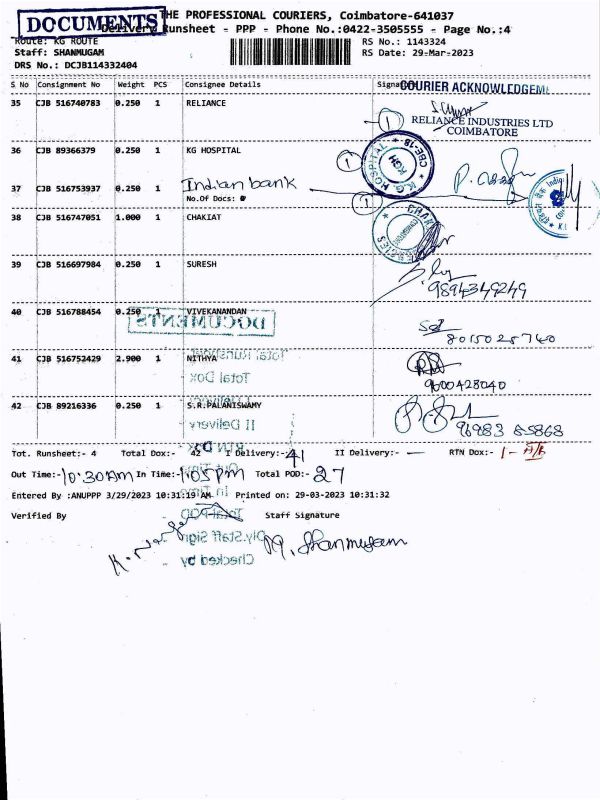 DOCUMENTS
THE PROFESSIONAL COURIERS, Coimbatore-641037
Delivery Runsheet - PPP - Phone No.:0422-3505555 - Page No.:4
Route: KG ROUTE RS No.: 1143324
Staff: SHANMUGAM RS Date: 29-Mar-2023
DRS No.: DCJB114332404
S No Consignment No Weight PCS Consignee Details COURIER ACKNOWLEDGEM
35 CJB 516740783 0.250 1 RELIANCE 1
RELIANCE INDUSTRIES LTD
COIMBATORE
36 CJB 89366379 0.250 1 KG HOSPITAL 1 K.G. HOSPITAL KGH CBE-18
37 CJB 516753937 0.250 1 Indian bank
No.Of Docs: 1
38 CJB 516747051 1.000 1 CHAKIAT
39 CJB 516697984 0.250 1 SURESH
9894349249
40 CJB 516788454 0.250 1 VIVEKANANDAN
DOCUMENTS
8015025740
41 CJB 516752429 2.900 1 NITHYA
Total Runsheet
9600428040
Total Dox
42 CJB 89216336 0.250 1 S.R.PALANISWAMY
II Delivery
96983 85868
Tot. Runsheet:- 4 Total Dox:- 42 I Delivery:- 41 II Delivery:- — RTN Dox:- 1 -
RTN Dox
Out Time:- 10.30Am In Time:- 1.05PM Total POD:- 27
Entered By :ANUPPP 3/29/2023 10:31:19 AM Printed on: 29-03-2023 10:31:32
In Time
Total POD
Verified By Staff Signature
Dly.Staff Sign
M. Shanmugam
Checked by